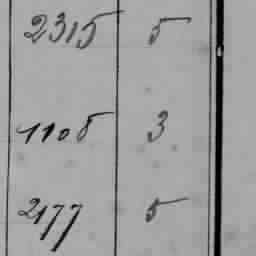 2315 5
1108 3
2177 5